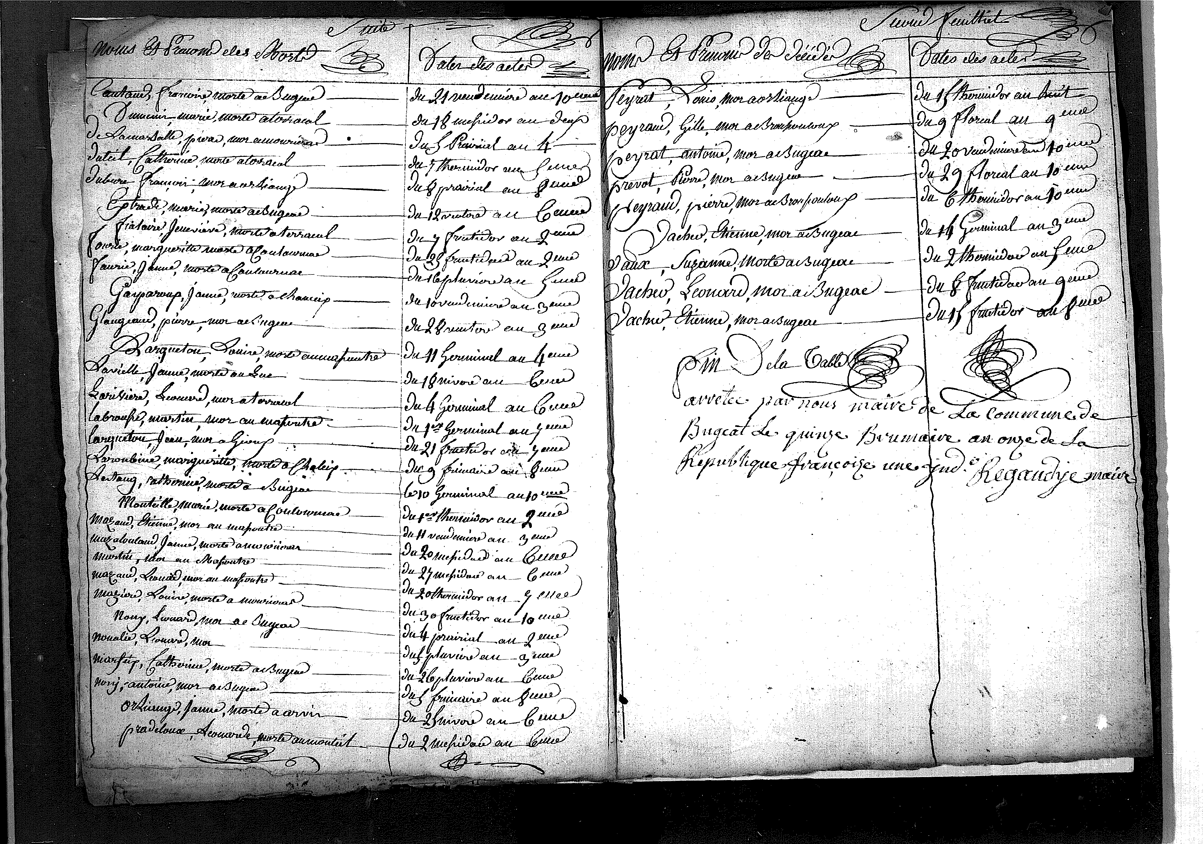 Suite
noms Et Prenom des Morts Dates des actes
Cautaud, françoise, morte a Bugeac du 21 vendemiere an 10eme
Dumein, marie, morte a tossacal du 18 mesidor an deux
de Lamassalle, pierre, mor amourieras du 5 Prairial an 4
dateil, Catherine, morte a tossacal du 7 thermidor an 5eme
dubure, françois, mor a orsiange du 8 prairial an 8eme
Estrade, marie, morte a Bugeac du 12 ventose an 6eme
fiataire, Jeneviere, morte a terracol du 7 fruttidor an 2eme
fourie, marguerite, morte a Couloumac du 25 fruttidord an 2eme
faurie, Janne, morte a Couloumac du 16 pluviere an 5eme
Gasparoux, Janne, morte a du 10 vendemiere an 3eme
Glangeaud, pierre, mor a Bugeac du 28 ventose an 3eme
Larqueton, Louise, morte au masfentre du 11 Germinal an 4eme
Lavielle, Janne, morte au Luc du 18 nivose an 6eme
Larisiere, Leonard, mor a terracol du 4 Germinal an 6eme
labrousse, martin, mor au masfentre du 1er Germinal an 7eme
larqueton, Jean, mor a Gioux du 21 fructidor an 7eme
Laroubine, margueritte, morte a Chaleix du 9 frimaire an 8eme
Lestang, catherine, morte a Bugeac le 10 Germinal an 10eme
Monteille, marie, morte a Couloumac du 1er thermidor an 2eme
mazaud, Etienne, mor au masfentre du 11 vendemiere an 3eme
mazaloubaud, Janne, morte a mourieras du 20 mesidord an 6eme
martin, mor au Masfentre du 27 mesidord an 6eme
mazaud, Leonard, mor au masfentre du 20 thermidor an 7eme
maziere, Louise, morte a mourieras du 30 fruttidor an 10eme
Nony, Leonard, mor a Bugeac du 4 prairial an 2eme
noualie, Leonard, mor du 5 pluviere an 3eme
, Catherine, morte a Bugeac du 26 pluviere an 6eme
nony, antoine, mor a Bugeac du 5 frimaire an 8eme
Orliange, Janne, morte a arvis du 25 nivose an 6eme
pradeloux, Leonarde, morte au monteil du 2 mesidord an 6eme
Second feuillet
noms Et Prenom du décédés Dates des actes
Peyrat, Louis, mor a orliange du 15 thermidor an huit
peyraud, Gille, mor a Brospouloux du 9 floreal an 9eme
peyrat, antoine, mor a Bugeac du 20 vendemiere an 10eme
prevot, Pierre, mor a Bugeac du 29 floreal an 10eme
peyraud, pierre, mor a Brospouloux du 6 thermidor an 10eme
Vacher, Etienne, mor a Bugeac du 14 Germinal an 3eme
Vaux, Suzanne, Morte a Bugeac du 2 thermidor an 5eme
Vacher, Leonard, mor a Bugeac du 8 fruttidor an 9eme
Vacher, Etienne, mor a Bugeac du 15 fruttidor an 8eme
fin De la Table
arretée par nous maire de La commune de
Bugeat Le quinze Brumaire an onze de La
République françoise une & ind.e Regaudye maire